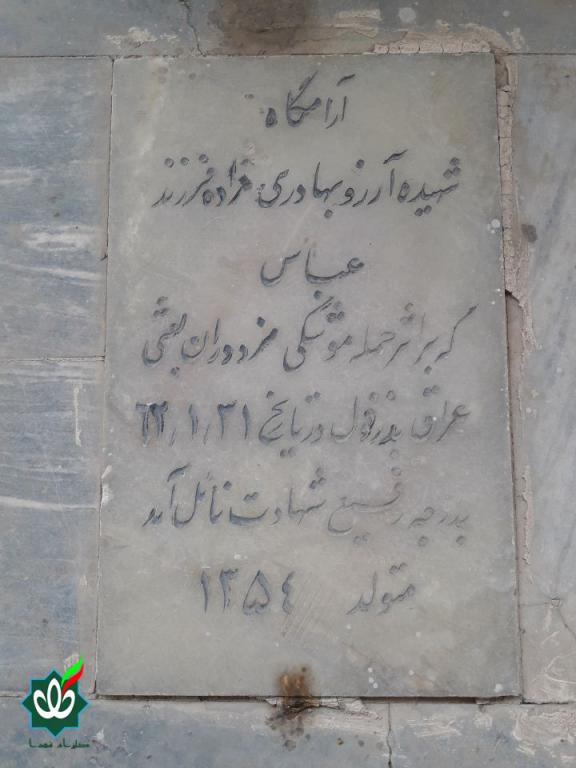 آرامگاه
شهیده آرزو بهادری نژاد فرزند
عباس
که بر اثر حمله موشکی مزدوران بعثی
عراق بدزفول در تاریخ ۶۲٫۱٫۳۱
بدرجه رفیع شهادت نائل آمد
متولد ۱۳۵۴